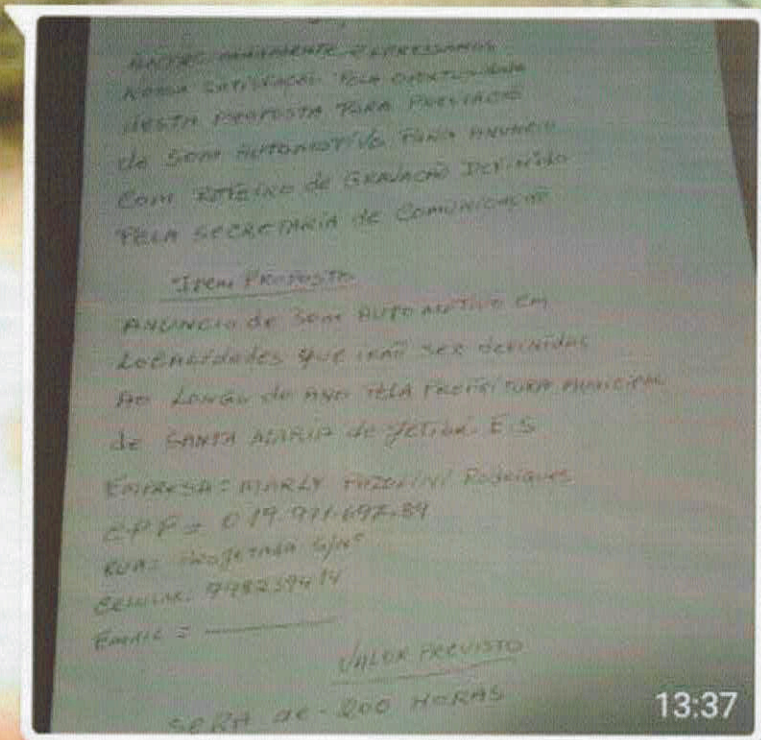 NOSSA SATISFAÇÃO PELA OPORTUNIDADE
DESTA PROPOSTA PARA PRESTAÇÃO
de SOM AUTOMOTIVO PARA ANUNCIO
COM ROTEIRO de GRAVAÇÃO DEFINIDO
PELA SECRETARIA de COMUNICAÇÃO
ITEM PROPOSTO
ANUNCIO de SOM AUTOMOTIVO em
LOCALIDADES QUE IRÃO SER DEFINIDAS
AO LONGO do ANO PELA PREFEITURA MUNICIPAL
de SANTA MARIA de JETIBÁ. E.S
EMPRESA: MARLY Rodrigues
CPF=
RUA: PROJETADA S/Nº
CELULAR:
EMAIL =
VALOR PREVISTO
SERA de - 200 HORAS
13:37